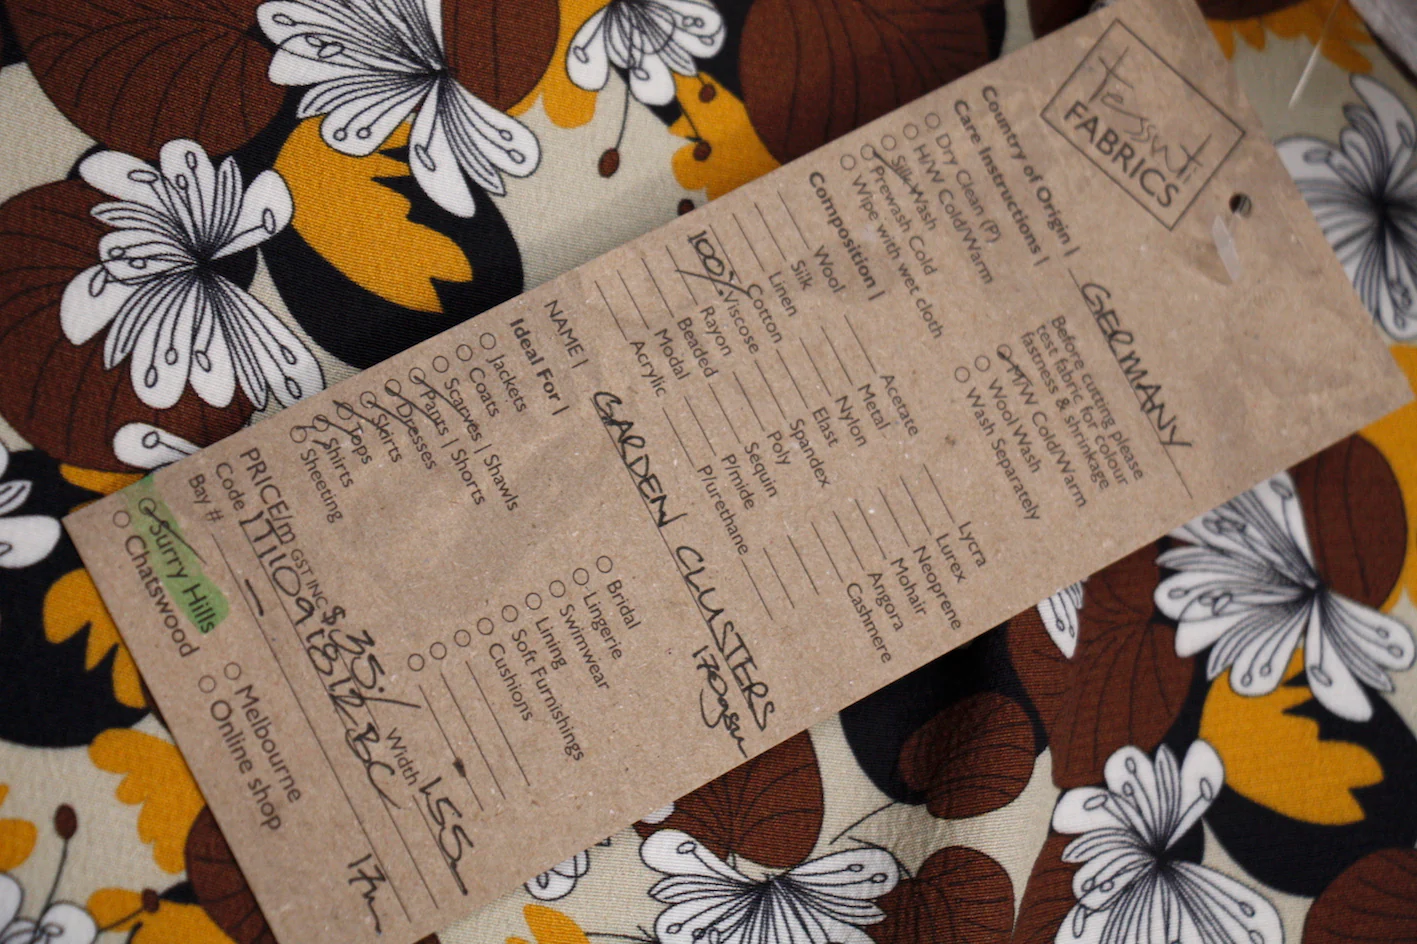 Tessuti
FABRICS
Country of Origin | GERMANY
Care Instructions |
Before cutting please
test fabric for colour
fastness & shrinkage
Dry Clean (P)
H/W Cold/Warm
Silk Wash
Prewash Cold
Wipe with wet cloth
M/W Cold/Warm
Wool Wash
Wash Separately
Composition |
Wool
Silk
Linen
Cotton
100% Viscose
Rayon
Beaded
Modal
Acrylic
Acetate
Metal
Nylon
Elast
Spandex
Poly
Sequin
P/mide
P/urethane
Lycra
Lurex
Neoprene
Mohair
Angora
Cashmere
NAME | GARDEN CLUSTERS
170gsm
Ideal For |
Jackets
Coats
Scarves | Shawls
Pants | Shorts
Dresses
Skirts
Tops
Shirts
Sheeting
Bridal
Lingerie
Swimwear
Lining
Soft Furnishings
Cushions
PRICE/m GST INC $ 35./ Width 155
Code
Bay # - 17m
Surry Hills
Chatswood
Melbourne
Online shop